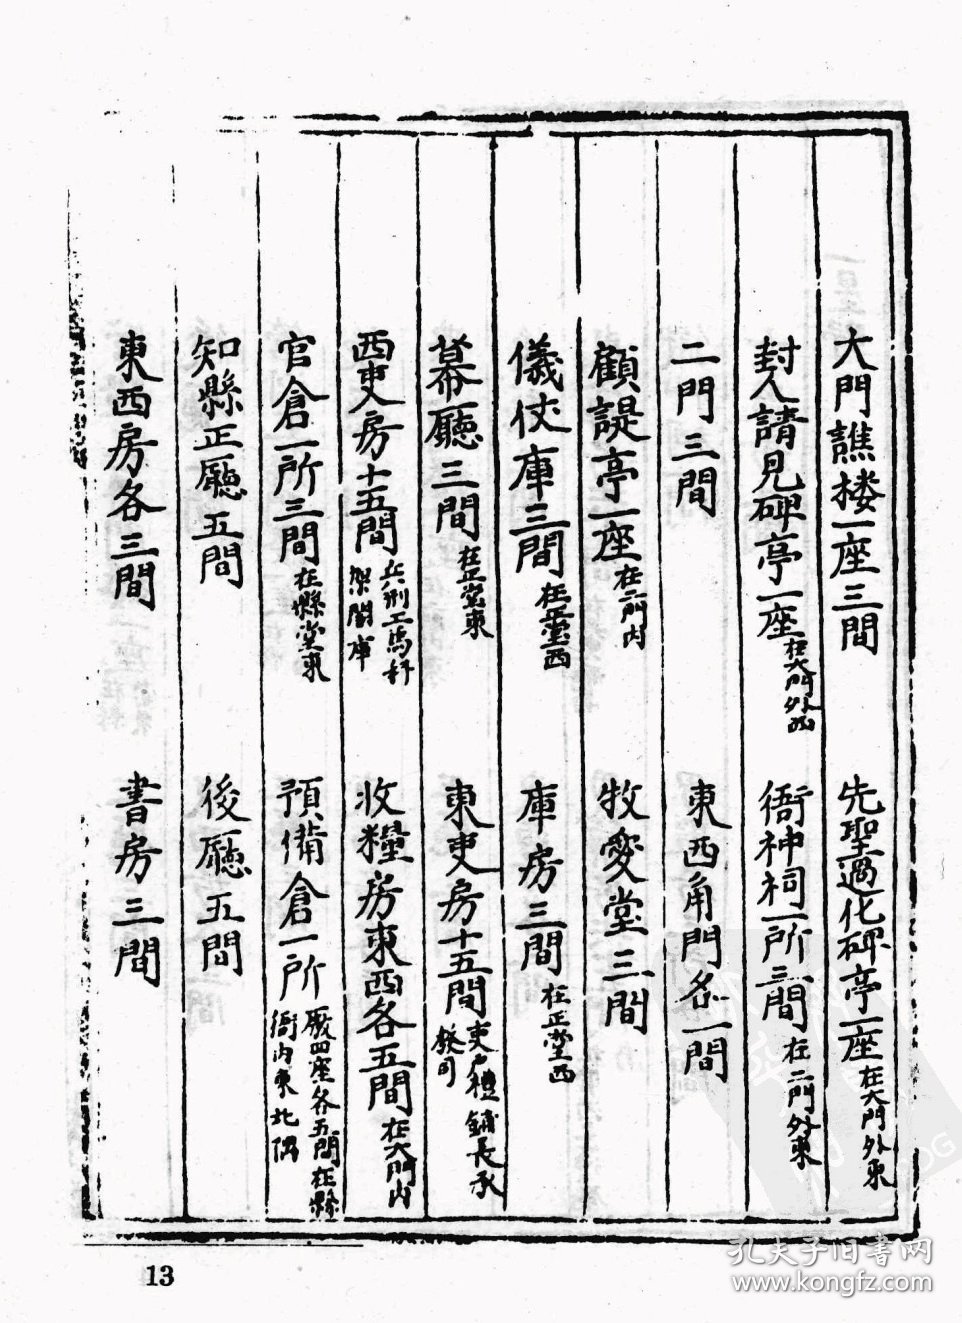 大門譙楼一座三間 先聖過化碑亭一座在大門外東
封人請見碑亭一座在大門外西 衙神祠一所三間在二門外東
二門三間 東西角門各一間
顧諟亭一座在二門内 牧愛堂三間
儀仗庫三間在正堂西 庫房三間在正堂西
幕廳三間在正堂東 東吏房十五間吏户禮鋪長承發司
西吏房十五間兵刑工馬科架閣庫 收糧房東西各五間在大門内
官倉一所三間在縣堂東 預備倉一所廠四座各五間在縣衙内東北隅
知縣正廳五間 後廳五間
東西房各三間 書房三間
13
孔夫子旧書网
www.kongfz.com